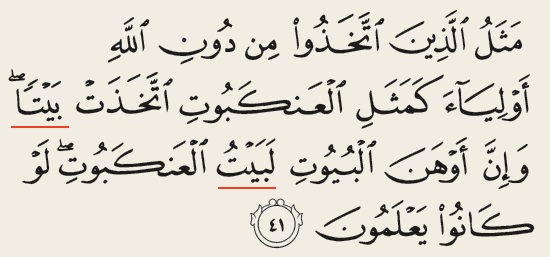 مَثَلُ ٱلَّذِينَ ٱتَّخَذُوا۟ مِن دُونِ ٱللَّهِ
أَوْلِيَآءَ كَمَثَلِ ٱلْعَنكَبُوتِ ٱتَّخَذَتْ بَيْتًا ۖ
وَإِنَّ أَوْهَنَ ٱلْبُيُوتِ لَبَيْتُ ٱلْعَنكَبُوتِ ۖ لَوْ
كَانُوا۟ يَعْلَمُونَ ٤١